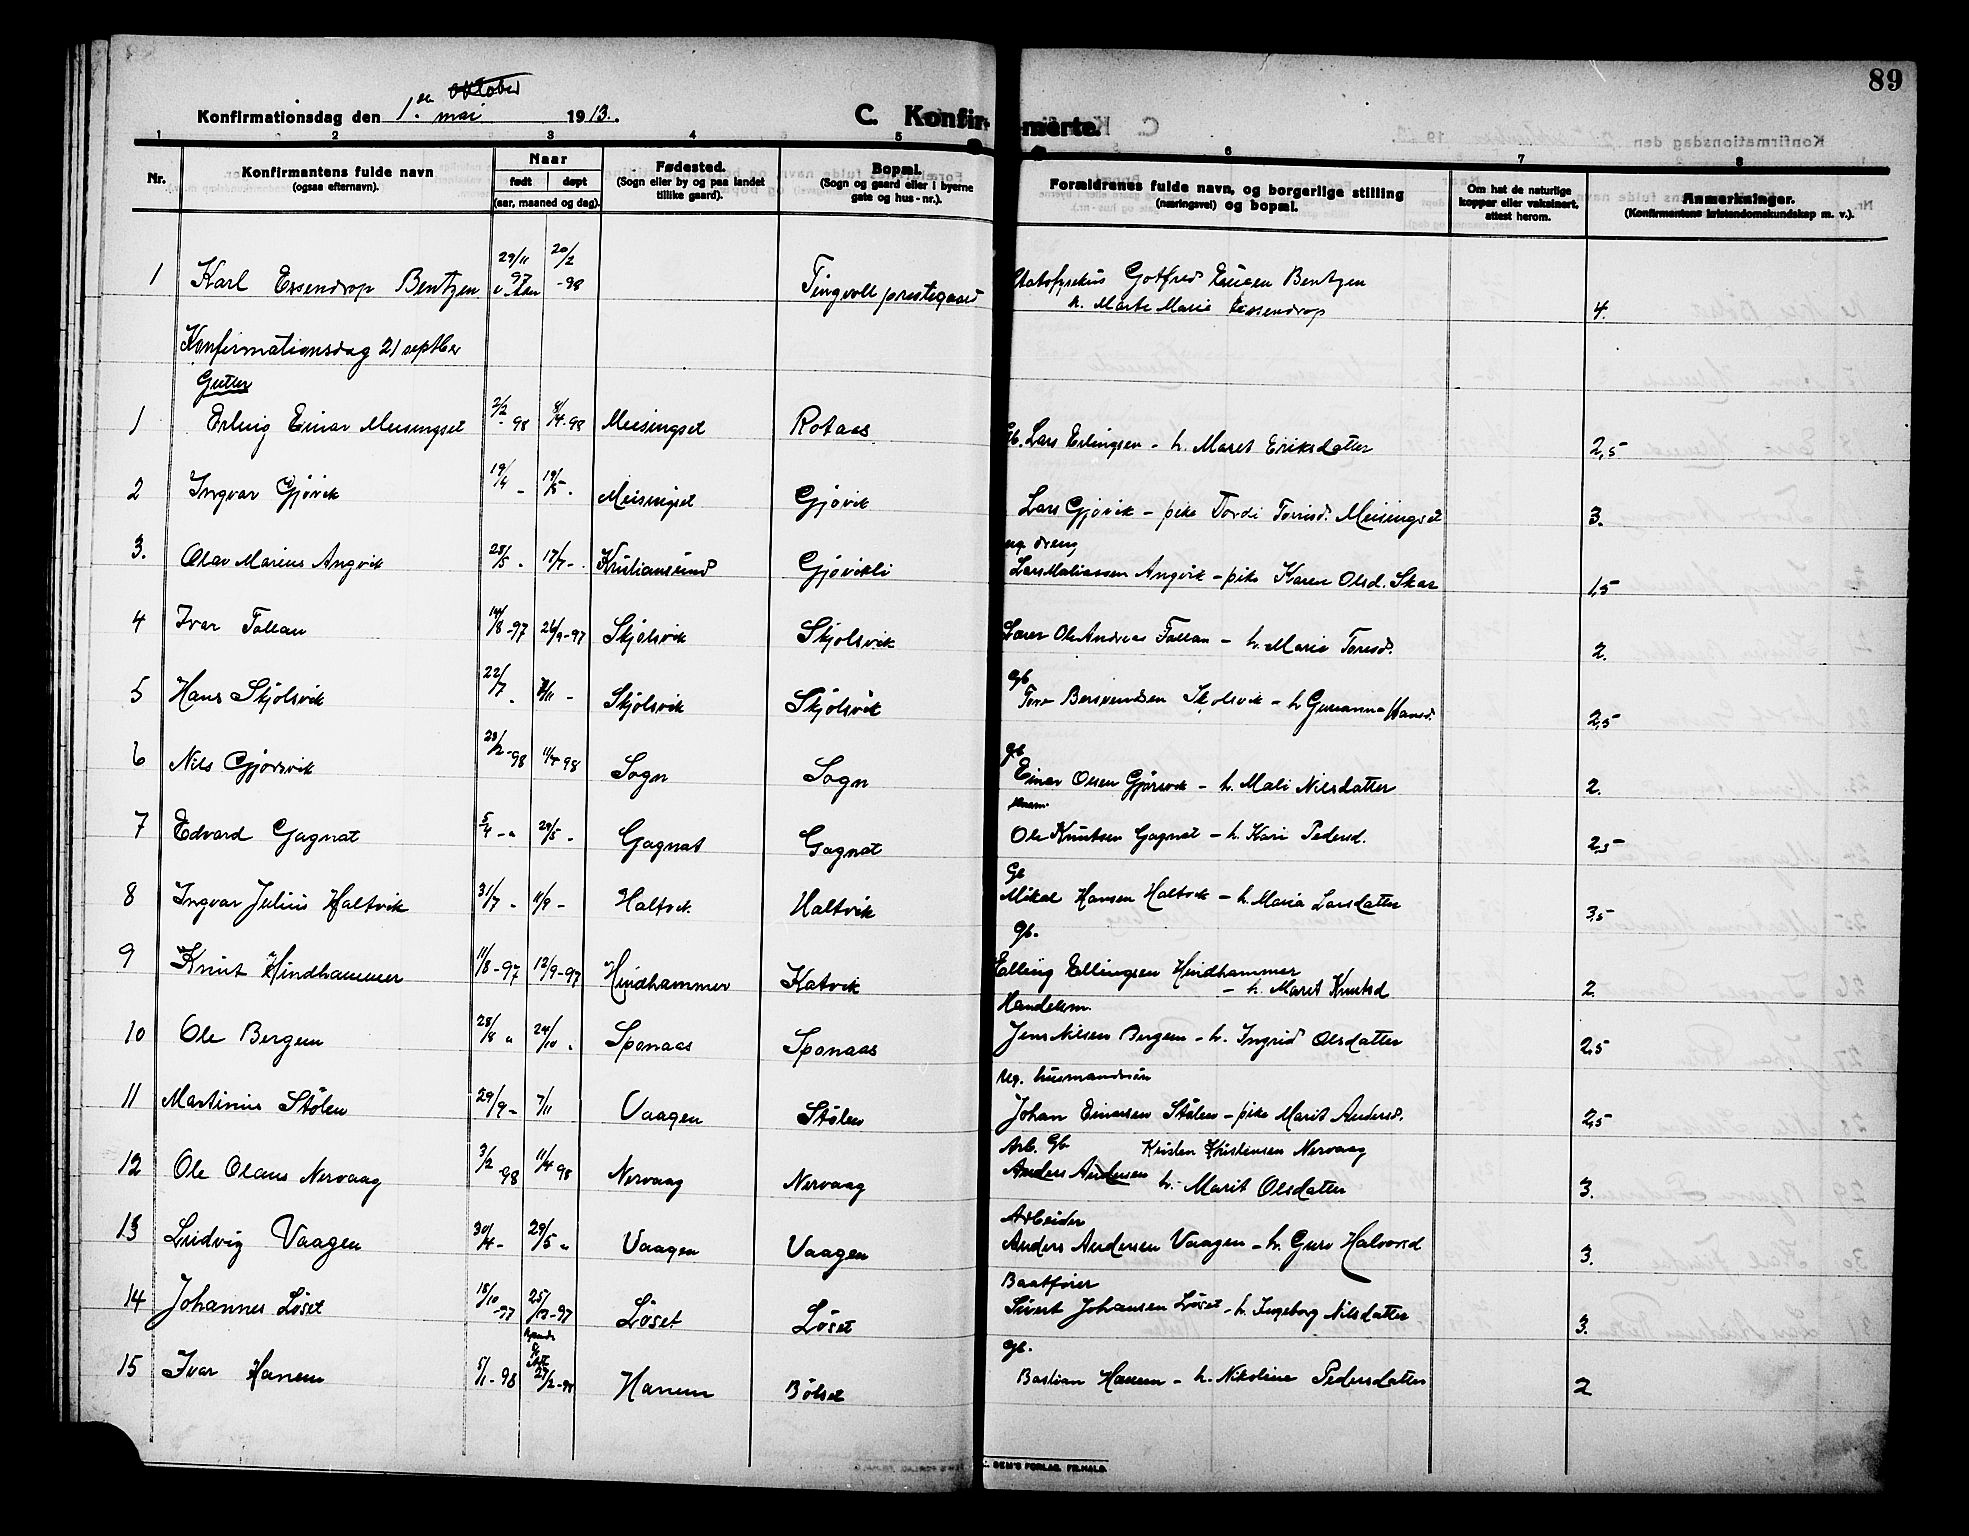 89
oktober
Konfirmationsdag den 1. mai 1913.
C. Konfirmerte.
1 2 3 4 5 6 7 8
Nr.
Konfirmantens fulde navn
(ogsaa efternavn).
Naar
født
døpt
(aar, maaned og dag).
Fødested.
(Sogn eller by og paa landet
tillike gaard).
Bopæl.
(Sogn og gaard eller i byerne
gate og hus-nr.).
Forældrenes fulde navn, og borgerlige stilling
(næringsvei) og bopæl.
Om hat de naturlige
kopper eller vaksinert,
attest herom.
Anmerkninger.
(Konfirmantens kristendomskundskap m. v.).
1 Karl Essendrop Bentzen 29/11 97 20/2 -98 Tingvoll prestegaard Gotfred Eugen Bentzen
h. Marte Marie Essendrop 4.
Konfirmationsdag 21 septber
Gutter
1 Erling Einar Meisingset 2/2 -98 11/4-98 Meisingset Rotaas Gb. Lars Erlingsen - h. Maret Eriksdatter 2,5
2 Ingvar Gjövik 19/4 - 19/5 - Meisingset Gjövik Lars Gjövik - pike Tordi Torrisd. Meisingset 3.
ug. dreng
3. Olav Marius Angvik 28/5 - 17/7 - Kristiansund Gjövikli Lars Matiassen Angvik - pike Karen Olsd. Skar 1,5
4 Ivar Tallau 14/8-97 26/9-97 Skjölsvik Skjolsvik Lærer Ole Andreas Fallan - h. Marie Toresd. 2.
Gb
5 Hans Skjölsvik 22/7 - 7/11 - Skjölsvik Skjölsvik Tore Bersvendsen Skjolsvik - h Gurianna Hansd. 2,5
gb
6 Nils Gjörsvik 23/2-98 11/4-98 Sogn Sogn Einar Olsen Gjörsvik - h. Mali Nilsdatter 2.
7 Edvard Gagnat 5/4 - " 29/5 - Gagnat Gagnat Ole Knutsen Gagnat - h. Kari Pedersd. 2,5
Gb
8 Ingvar Julius Haltvik 31/7 - 11/9 - Haltvik Haltvik Mikal Hansen Haltvik - h. Maria Larsdatter 3,5
Gb.
9 Knut Hindhammer 11/8-97 12/9-97 Hindhammer Katvik Elling Ellingsen Hindhammer
- h. Marit Knutsd 2.
Handelsm.
10 Ole Bergem 28/8 " 24/10 " Sponaas Sponaas Jens Nilsen Bergem - h. Ingrid Olsdatter 2,5
Ug. husmandssön
11 Martinius Stölen 29/9 - 7/11 Vaagen Stölen Johan Einarsen Stölen - pike Marit Andersd. 2,5
Arb. Gb Kristen Kristensen Nervaag
12 Ole Olaus Nervaag 3/2 98 11/4 98 Nervaag Nervaag Anders Andersen h. Marit Olsdatter 3.
Arbeider
13 Ludvig Vaagen 30/4 - 29/5 " Vaagen Vaagen Anders Andersen Vaagen - h. Guro Halvorsd 3.
Baatfører
14 Johannes Löset 18/10 -97 25/12-97 Löset Löset Sivert Johansen Löset - h. Ingeborg Nilsdatter 3.
gb.
15 Ivar Hanem 5/1-98 27/2-98 Hanem Bölset Bastian Hanem - h. Nikoline Pedersdatter 2
SEM'S FORLAG, FR.HALD.